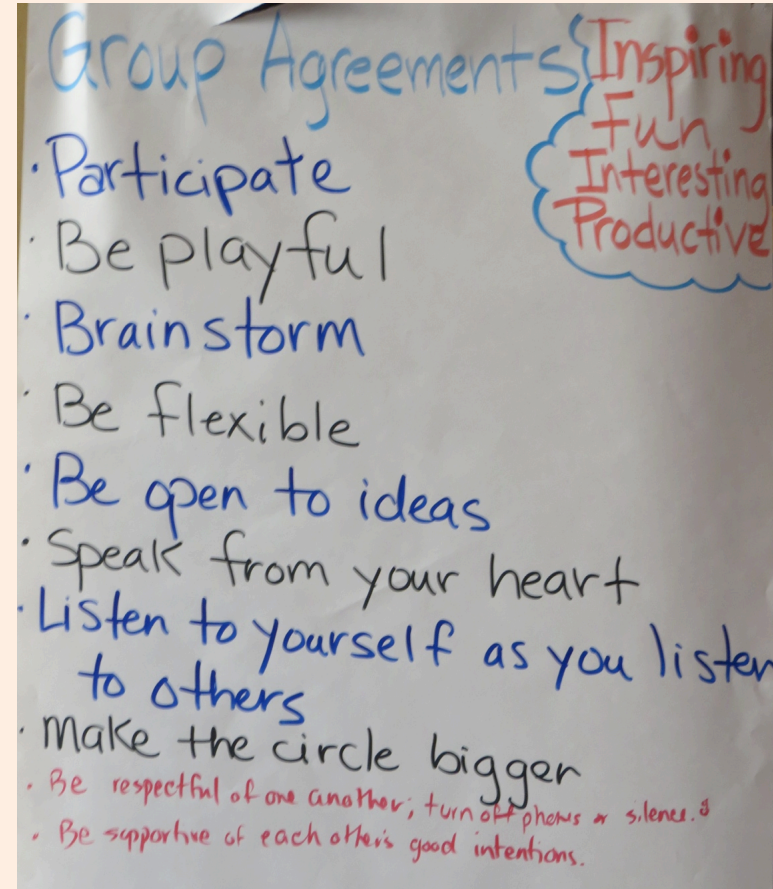 Group Agreements
Inspiring
Fun
Interesting
Productive
· Participate
· Be playful
· Brainstorm
· Be flexible
· Be open to ideas
· Speak from your heart
· Listen to yourself as you listen
to others
· Make the circle bigger
· Be respectful of one another; turn off phones or silence.
· Be supportive of each other's good intentions.